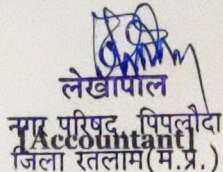 लेखापाल
नगर परिषद, पिपलौदा
[Accountant]
जिला रतलाम (म.प्र.)